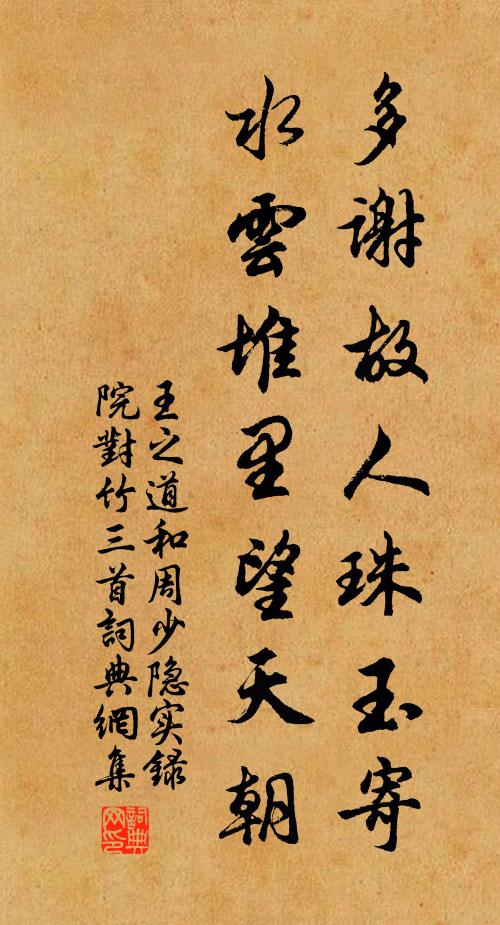 多谢故人珠玉寄
水雲堆里望天朝
王之道和周少隐实録
院對竹三首詞典網集
詞典
网印